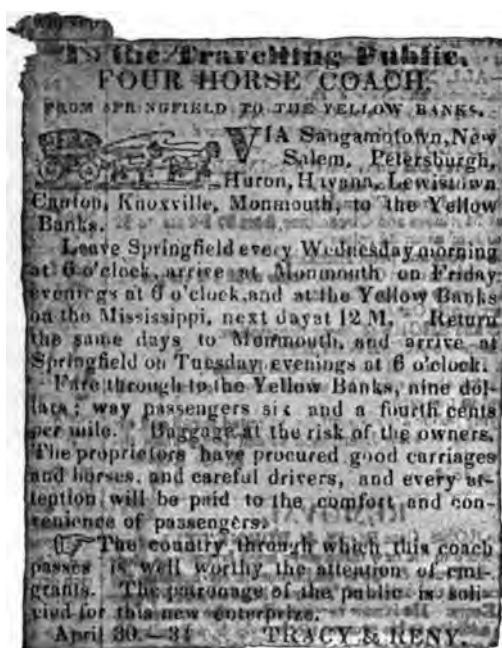 To the Travelling Public.
FOUR HORSE COACH,
FROM SPRINGFIELD TO THE YELLOW BANKS.
VIA Sangamotown, New
Salem, Petersburgh,
Huron, Havana, Lewistown
Canton, Knoxville, Monmouth, to the Yellow
Banks.
Leave Springfield every Wednesday morning
at 6 o'clock, arrive at Monmouth on Friday
evenings at 6 o'clock, and at the Yellow Banks
on the Mississippi, next day at 12 M. Return
the same days to Monmouth, and arrive at
Springfield on Tuesday evenings at 6 o'clock.
Fare through to the Yellow Banks, nine dol-
lars; way passengers six and a fourth cents
per mile. Baggage at the risk of the owners.
The proprietors have procured good carriages
and horses, and careful drivers, and every at-
tention will be paid to the comfort and con-
venience of passengers.
The country through which this coach
passes is well worthy the attention of emi-
grants. The patronage of the public is soli-
cied for this new enterprize.
April 30.—34 TRACY & RENY.